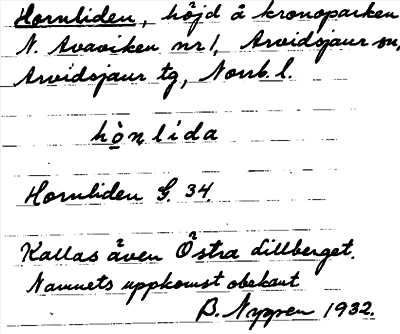 Hornliden, höjd å kronoparken
N. Avaviken nr 1, Arvidsjaur sn,
Arvidsjaur tg, Norrb. l.
hò̱n̠lida
Hornliden G. 34.
Kallas även Östra Lillberget.
Namnets uppkomst obekant
B. Nygren 1932.